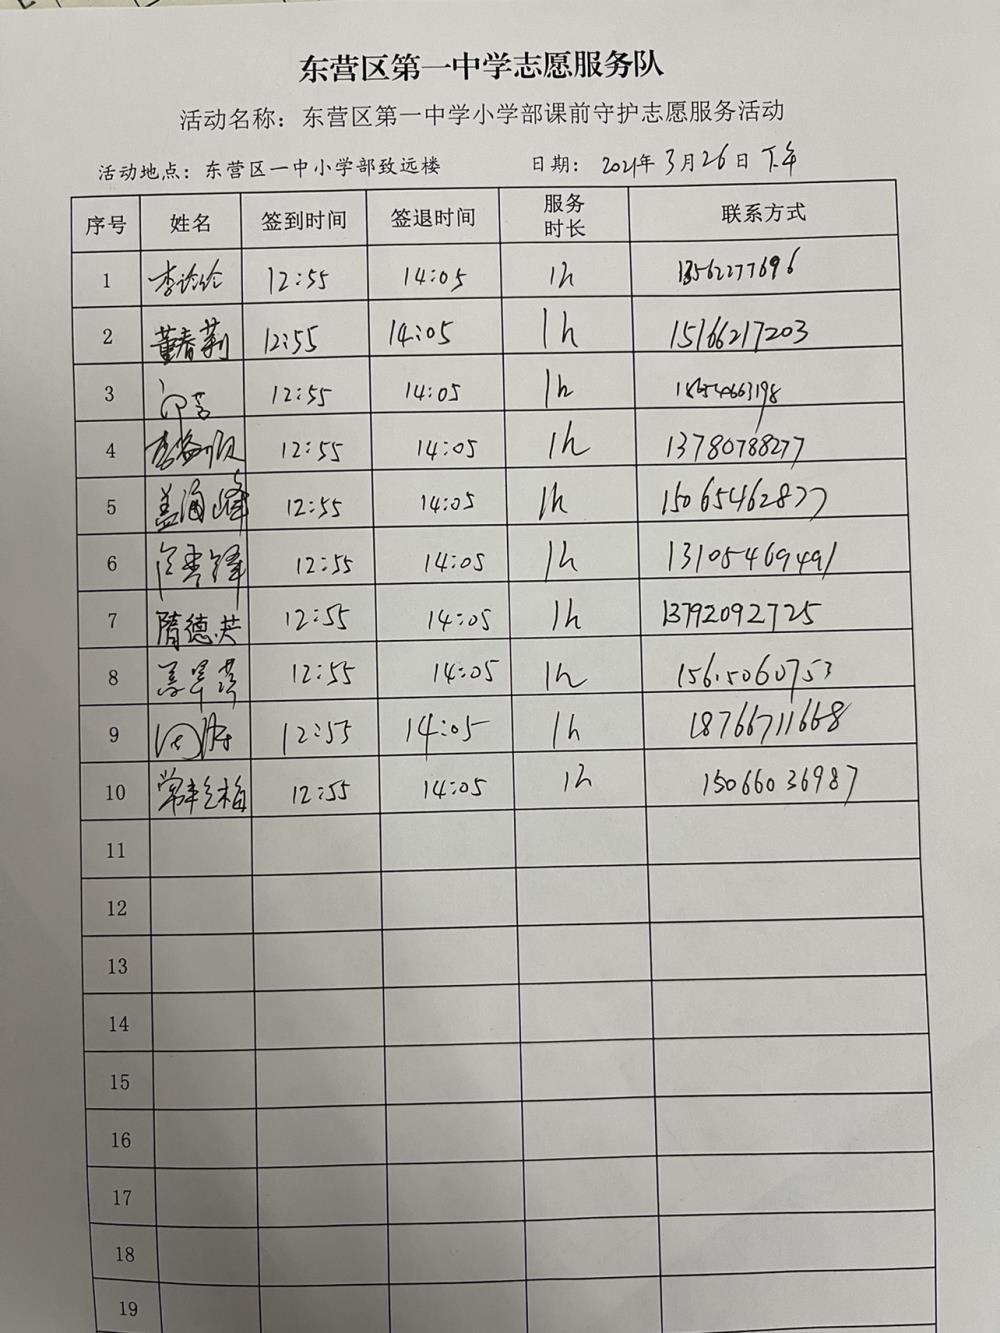 东营区第一中学志愿服务队
活动名称：东营区第一中学小学部课前守护志愿服务活动
活动地点：东营区一中小学部致远楼 日期：2021年3月26日下午
序号 姓名 签到时间 签退时间 服务时长 联系方式
1 12:55 14:05 1h 13562277696
2 董春莉 12:55 14:05 1h 15166217203
3 12:55 14:05 1h
4 12:55 14:05 1h 13780788277
5 盖海峰 12:55 14:05 1h 15065462877
6 12:55 14:05 1h 13105469491
7 隋德共 12:55 14:05 1h 13792092725
8 12:55 14:05 1h 15615060753
9 12:55 14:05 1h 18766711668
10 12:55 14:05 1h 15066036987
11
12
13
14
15
16
17
18
19